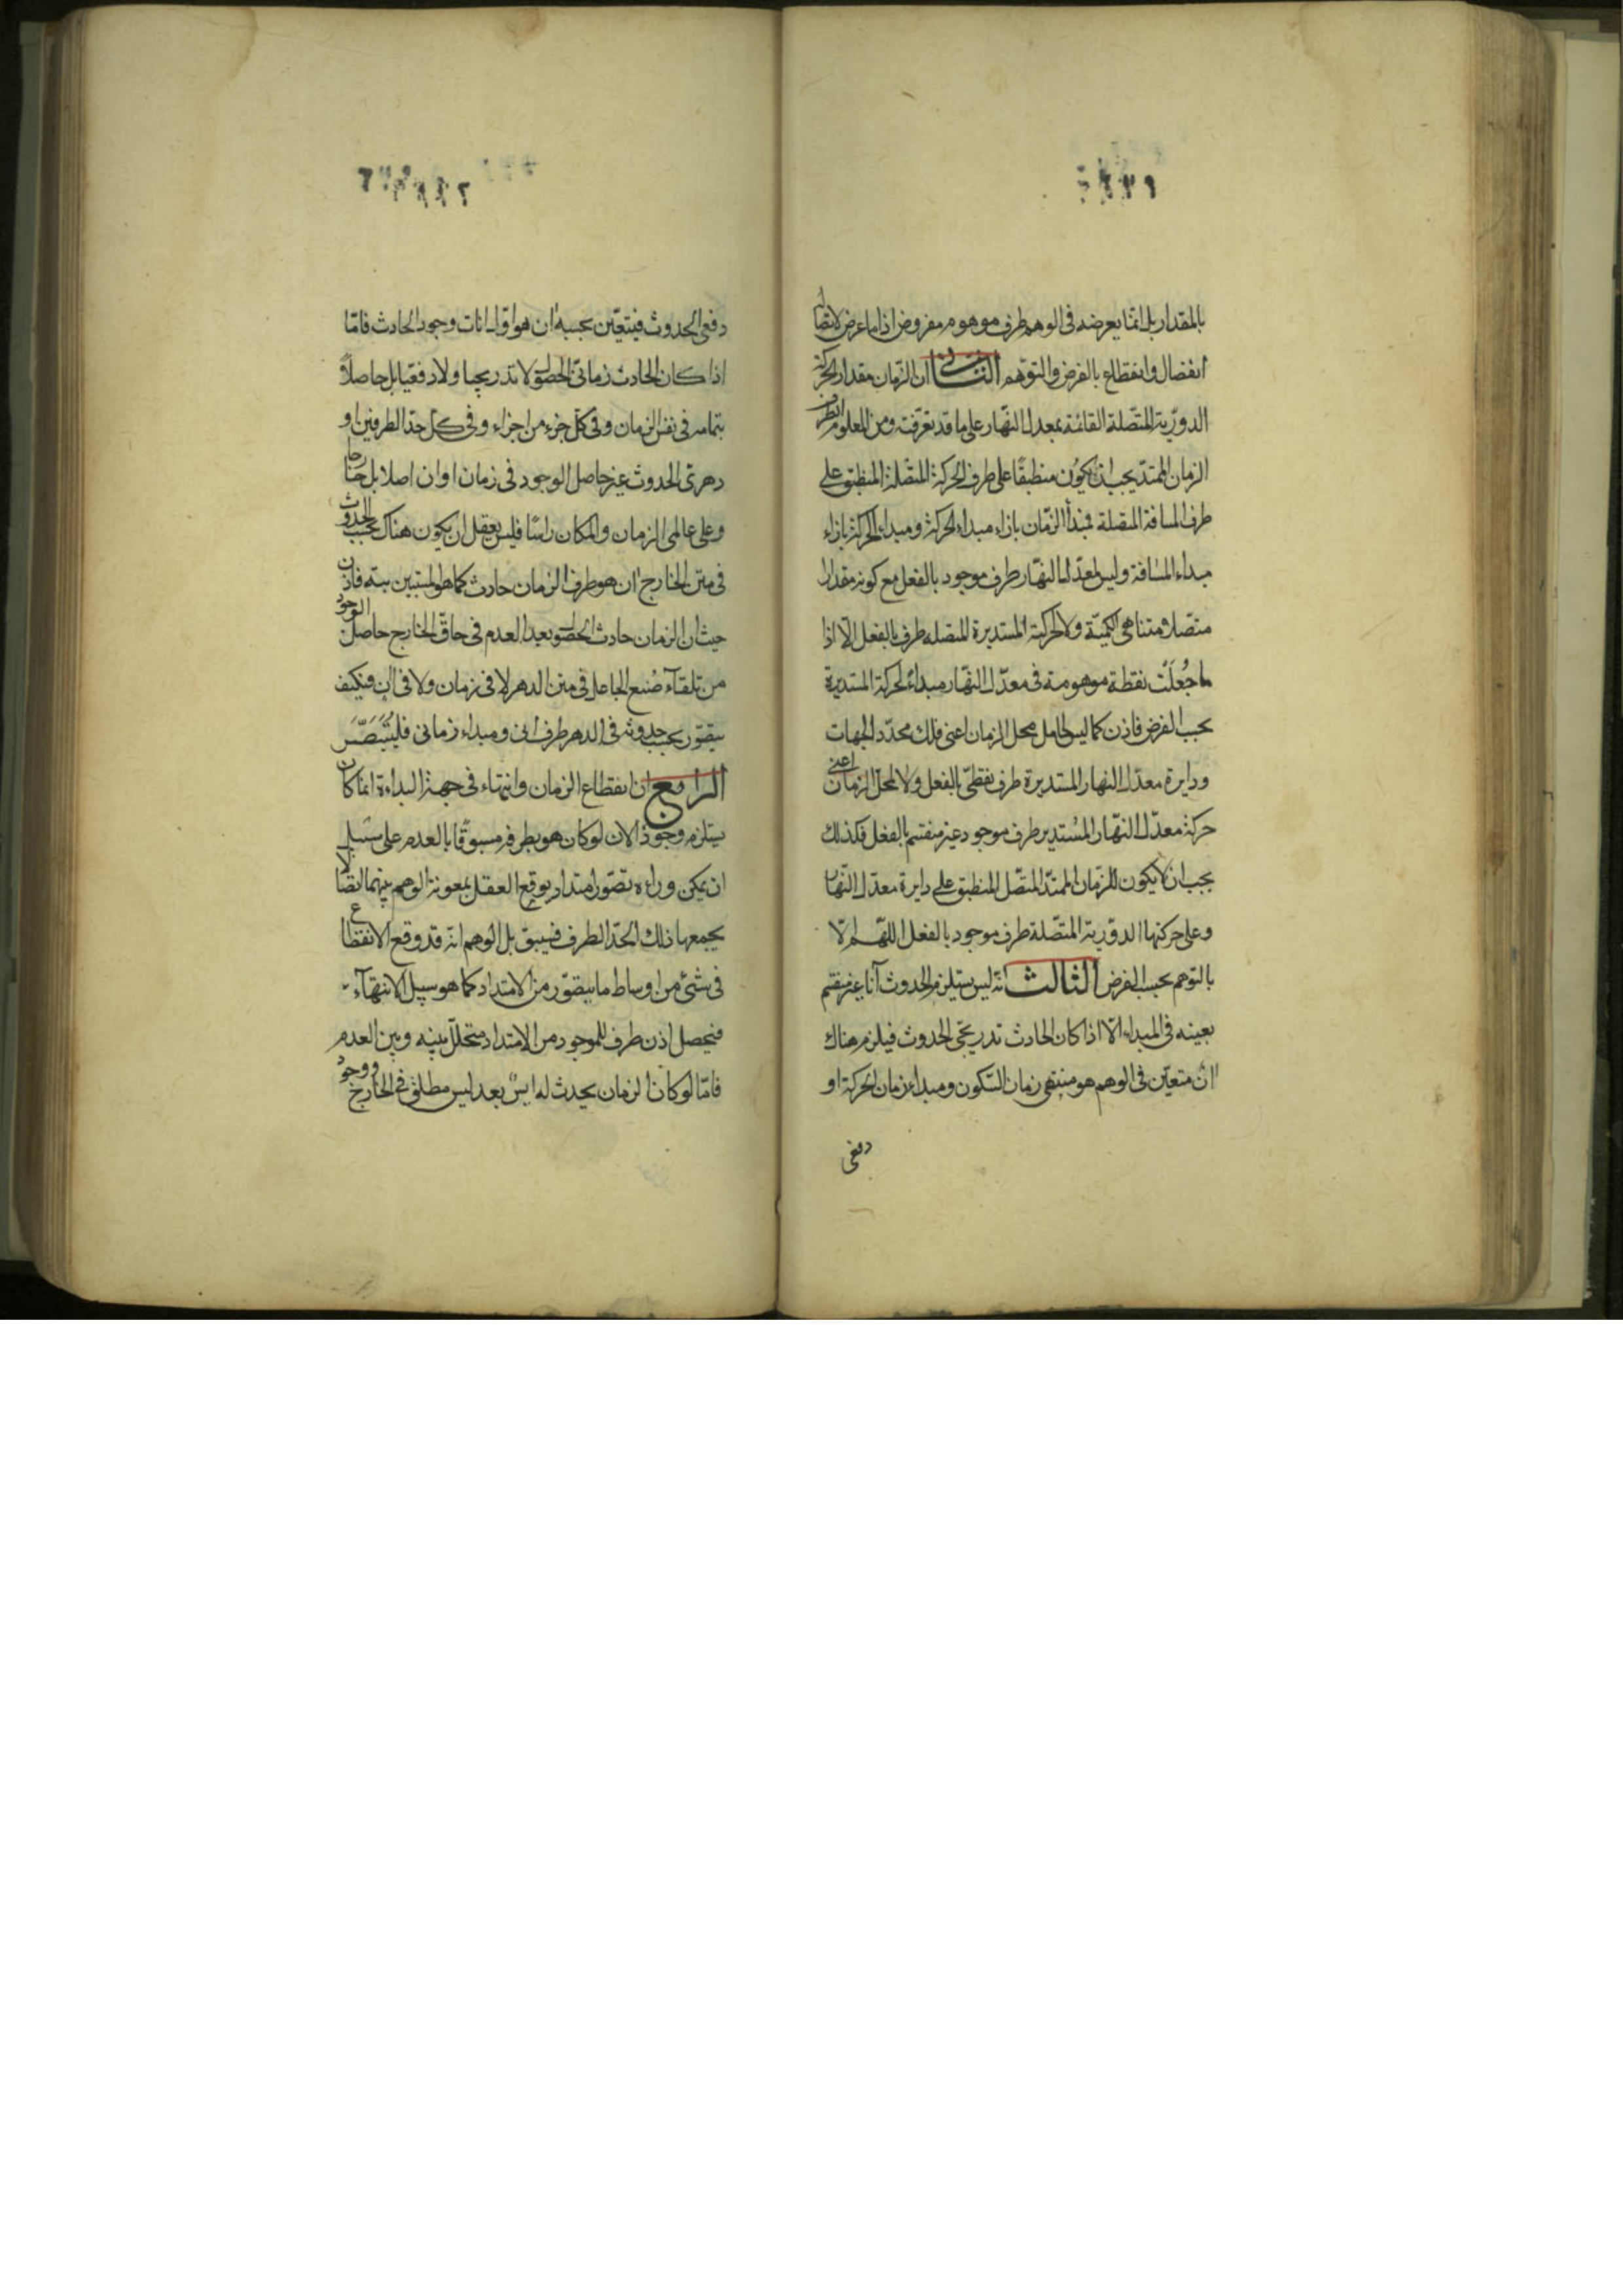 بالمقدار بل انما يعرضه فى الوهم طرف موهوم مفروض اذا ما عرض لاتصاله
انفصال وانقطاع بالفرض والتوهم الثانى ان الزمان مقدار الحركة
الدورية المتصلة القائمة بمعدل النهار على ما قد تعرفت ومن المعلوم ان طرف
الزمان الممتد يجب ان يكون منطبقا على طرف الحركة المتصلة المنطبق على
طرف المسافة المتصلة فمبدأ الزمان بازاء مبداء الحركة ومبداء الحركة بازاء
مبداء المسافة وليس لمعدل النهار طرف موجود بالفعل مع كونه مقدارا
متصلا متناهى الكمية ولا لحركته المستديرة المتصله طرف بالفعل الا اذا
ما جُعلت نقطة موهومة فى معدل النهار مبداء لحركته المستديرة
بحسب الفرض فاذن كما ليس لحامل محل الزمان اعنى فلك محدد الجهات
ودايرة معدل النهار المستديرة طرف نقطى بالفعل ولا لمحل الزمان اعنى
حركة معدل النهار المستدير طرف موجود غير منقسم بالفعل فكذلك
يجب ان لا يكون للزمان الممتد المتصل المنطبق على دايرة معدل النهار
وعلى حركتها الدورية المتصلة طرف موجود بالفعل اللهم الا
بالتوهم بحسب الفرض الثالث انه ليس يستلزم الحدوث آنا غير منقسم
بعينه فى المبداء الا اذا كان الحادث تدريجى الحدوث فيلزم هناك
ان متعين فى الوهم هو منتهى زمان السكون ومبداء زمان الحركة او
دفعى
دفعى الحدوث فيتعين بحسبه ان هو اول انات وجود الحادث فاما
اذا كان الحادث زمانى الحصول لا تدريجيا ولا دفعيا بل حاصلا
بتمامه فى نفس الزمان وفى كل جزء من اجزاء وفى كل حد الطرفين او
دهرى الحدوث غير حاصل الوجود فى زمان او ان اصلا بل خارجا
وعلى عالمى الزمان والمكان راسا فليس يعقل ان يكون هناك بحسب الحدوث
فى متن الخارج ان هو طرف الزمان حادث كما هو المستبين بته فاذن
حيث ان الزمان حادث الحصول بعد العدم فى حاق الخارج حاصل الوجود
من تلقآء صُنع الجاعل فى متن الدهر لا فى زمان ولا فى ان فكيف
يتصور بحسب حدوثه فى الدهر طرف انى ومبداء زمانى فليُتَبَصَّر
الرابع ان انقطاع الزمان وانتهاء فى جهة البداءة انما كان
يستلزم وجود الان لو كان هو بطرفه مسبوقا بالعدم على سبيل
ان يمكن وراءه تصور امتداد يوقع العقل بمعونة الوهم بينهما اتصالا
يجمعها ذلك الحد الطرف فيسبق بل الوهم انه قد وقع الانقطاع
فى شئ من اوساط ما يتصور من الامتداد كما هو سبيل الانتهآء
فيحصل اذن طرف للموجود من الامتداد متخلل بينه وبين العدم
فاما لو كان الزمان يحدث له ايس بعد ليس مطلق فى الخارج ووجود